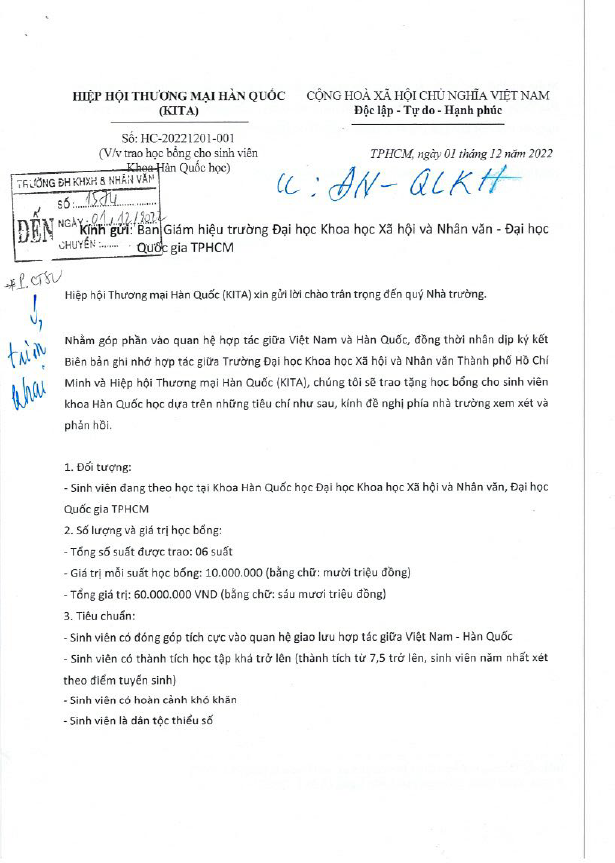 HIỆP HỘI THƯƠNG MẠI HÀN QUỐC
(KITA)
CỘNG HOÀ XÃ HỘI CHỦ NGHĨA VIỆT NAM
Độc lập - Tự do - Hạnh phúc
Số: HC-20221201-001
(V/v trao học bổng cho sinh viên
Khoa Hàn Quốc học)
TPHCM, ngày 01 tháng 12 năm 2022
TRƯỜNG ĐH KHXH & NHÂN VĂN
ĐẾN
SỐ:
NGÀY: 01/12/2022
CHUYỂN:......
CC: ĐN - QLKH
Kính gửi: Ban Giám hiệu trường Đại học Khoa học Xã hội và Nhân văn - Đại học
Quốc gia TPHCM
P. CTSV
triển
khai
Hiệp hội Thương mại Hàn Quốc (KITA) xin gửi lời chào trân trọng đến quý Nhà trường.
Nhằm góp phần vào quan hệ hợp tác giữa Việt Nam và Hàn Quốc, đồng thời nhân dịp ký kết
Biên bản ghi nhớ hợp tác giữa Trường Đại học Khoa học Xã hội và Nhân văn Thành phố Hồ Chí
Minh và Hiệp hội Thương mại Hàn Quốc (KITA), chúng tôi sẽ trao tặng học bổng cho sinh viên
khoa Hàn Quốc học dựa trên những tiêu chí như sau, kính đề nghị phía nhà trường xem xét và
phản hồi.
1. Đối tượng:
- Sinh viên đang theo học tại Khoa Hàn Quốc học Đại học Khoa học Xã hội và Nhân văn, Đại học
Quốc gia TPHCM
2. Số lượng và giá trị học bổng:
- Tổng số suất được trao: 06 suất
- Giá trị mỗi suất học bổng: 10.000.000 (bằng chữ: mười triệu đồng)
- Tổng giá trị: 60.000.000 VND (bằng chữ: sáu mươi triệu đồng)
3. Tiêu chuẩn:
- Sinh viên có đóng góp tích cực vào quan hệ giao lưu hợp tác giữa Việt Nam - Hàn Quốc
- Sinh viên có thành tích học tập khá trở lên (thành tích từ 7,5 trở lên, sinh viên năm nhất xét
theo điểm tuyển sinh)
- Sinh viên có hoàn cảnh khó khăn
- Sinh viên là dân tộc thiểu số